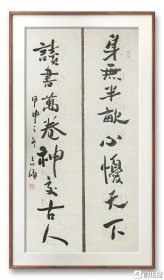 身無半畝心懮天下
讀書萬卷神交古人
甲申之